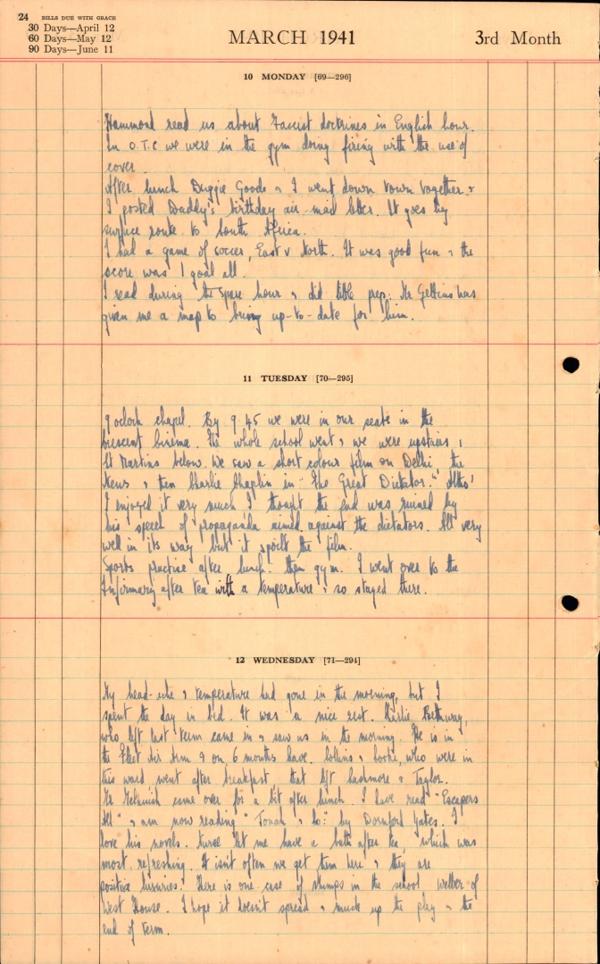 24 BILLS DUE WITH GRACE
30 Days—April 12
60 Days—May 12
90 Days—June 11
MARCH 1941
3rd Month
10 MONDAY [69—296]
Hammond read us about Fascist doctrines in English hour.
In O.T.C we were in the gym doing firing with the use of
cover.
After lunch Duggie Goode & I went down town together &
I posted Daddy's birthday air mail letter. It goes by
surface route to South Africa.
I had a game of soccer, East v North. It was good fun & the
score was 1 goal all.
I read during the spare hour & did bible prep. Mr Gettins has
given me a map to bring up-to-date for him.
11 TUESDAY [70—295]
9 oclock chapel. By 9.45 we were in our seats in the
Crescent Cinema. The whole school went & we were upstairs,
St Martins below. We saw a short colour film on Delhi, the
News & then Charlie Chaplin in "The Great Dictator." Altho'
I enjoyed it very much I thought the end was ruined by
his speech of propaganda aimed against the dictators. All very
well in its way but it spoilt the film.
Sports practise after lunch. then gym. I went over to the
Infirmary after tea with a temperature & so stayed there.
12 WEDNESDAY [71—294]
My head-ache & temperature had gone in the morning, but I
spent the day in bed. It was a nice rest. Charlie
who left last term came in & saw us in the morning. He is in
the Fleet Air Arm & on 6 months leave. Collins & who were in
this ward went after breakfast that left & Taylor.
Mr came over for a bit after lunch. I have read "Escapers
All" & am now reading "Jonah & Co." by Dornford Yates. I
love his novels. Nurse let me have a bath after tea, which was
most refreshing. It isn't often we get them here & they are
positive luxuries! There is one case of mumps in the school of
West House. I hope it doesn't spread & muck up the play & the
end of term.